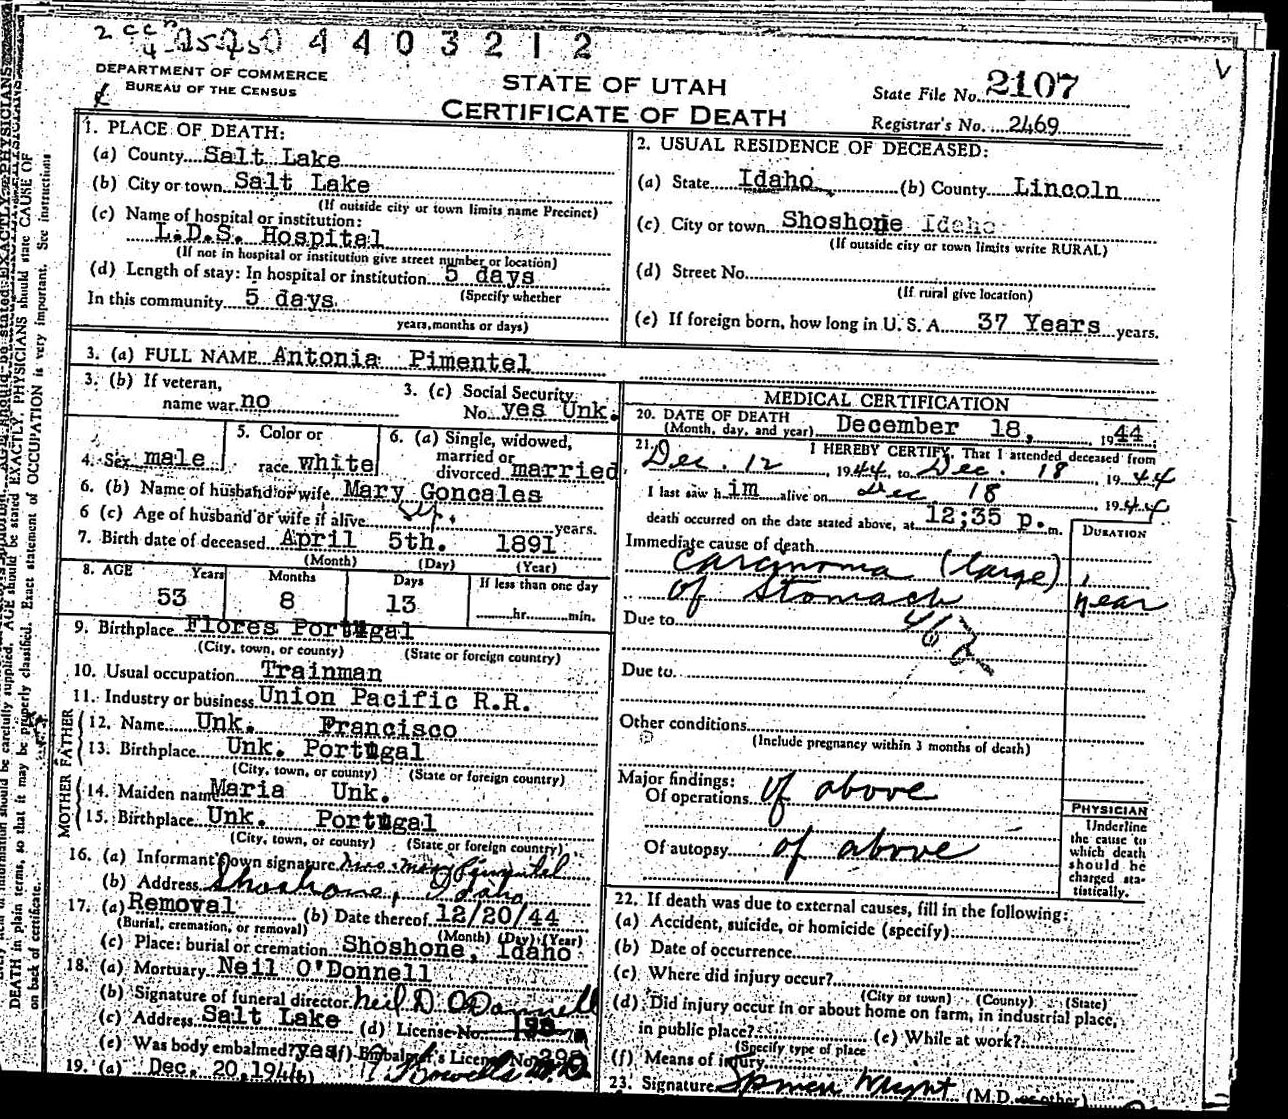 2 cc
4 4 0 3 2 1 2
DEPARTMENT OF COMMERCE
BUREAU OF THE CENSUS
STATE OF UTAH
CERTIFICATE OF DEATH
State File No. 2107
Registrar's No. 2469
1. PLACE OF DEATH:
(a) County Salt Lake
(b) City or town Salt Lake
(If outside city or town limits name Precinct)
(c) Name of hospital or institution:
L.D.S. Hospital
(If not in hospital or institution give street number or location)
(d) Length of stay: In hospital or institution 5 days
(Specify whether
In this community 5 days
years, months or days)
2. USUAL RESIDENCE OF DECEASED:
(a) State Idaho (b) County Lincoln
(c) City or town Shoshone Idaho
(If outside city or town limits write RURAL)
(d) Street No.
(If rural give location)
(e) If foreign born, how long in U. S. A. 37 Years years.
3. (a) FULL NAME Antonia Pimentel
3. (b) If veteran,
name war no
3. (c) Social Security
No. yes Unk.
4. Sex male
5. Color or
race white
6. (a) Single, widowed,
married or
divorced married
6. (b) Name of husband or wife Mary Goncales
6 (c) Age of husband or wife if alive years.
7. Birth date of deceased April 5th. 1891
(Month) (Day) (Year)
8. AGE Years Months Days If less than one day
53 8 13 hr. min.
9. Birthplace Flores Portugal
(City, town, or county) (State or foreign country)
10. Usual occupation Trainman
11. Industry or business Union Pacific R.R.
FATHER
12. Name Unk. Francisco
13. Birthplace Unk. Portugal
(City, town, or county) (State or foreign country)
MOTHER
14. Maiden name Maria Unk.
15. Birthplace Unk. Portugal
(City, town, or county) (State or foreign country)
16. (a) Informant's own signature Mrs. Mary Pimentel
(b) Address Shoshone, Idaho
17. (a) Removal (b) Date thereof 12/20/44
(Burial, cremation, or removal) (Month) (Day) (Year)
(c) Place: burial or cremation Shoshone, Idaho
18. (a) Mortuary Neil O'Donnell
(b) Signature of funeral director Neil D O'Donnell
(c) Address Salt Lake (d) License No.
(e) Was body embalmed? yes (f) Embalmer's License No.
19. (a) Dec. 20, 1944 (b)
MEDICAL CERTIFICATION
20. DATE OF DEATH
(Month, day, and year) December 18, 1944
21. I HEREBY CERTIFY, That I attended deceased from
Dec. 12, 1944 to Dec. 18, 1944
I last saw him alive on Dec 18 1944
death occurred on the date stated above, at 12;35 p. m.
DURATION
Immediate cause of death
Carcinoma (large)
of Stomach
1 year
Due to
Due to
Other conditions
(Include pregnancy within 3 months of death)
Major findings:
Of operations of above
Of autopsy of above
PHYSICIAN
Underline
the cause to
which death
should be
charged sta-
tistically.
22. If death was due to external causes, fill in the following:
(a) Accident, suicide, or homicide (specify)
(b) Date of occurrence
(c) Where did injury occur?
(City or town) (County) (State)
(d) Did injury occur in or about home on farm, in industrial place,
in public place? (e) While at work?
(Specify type of place
(f) Means of injury
23. Signature Spencer Wright (M.D. or other)